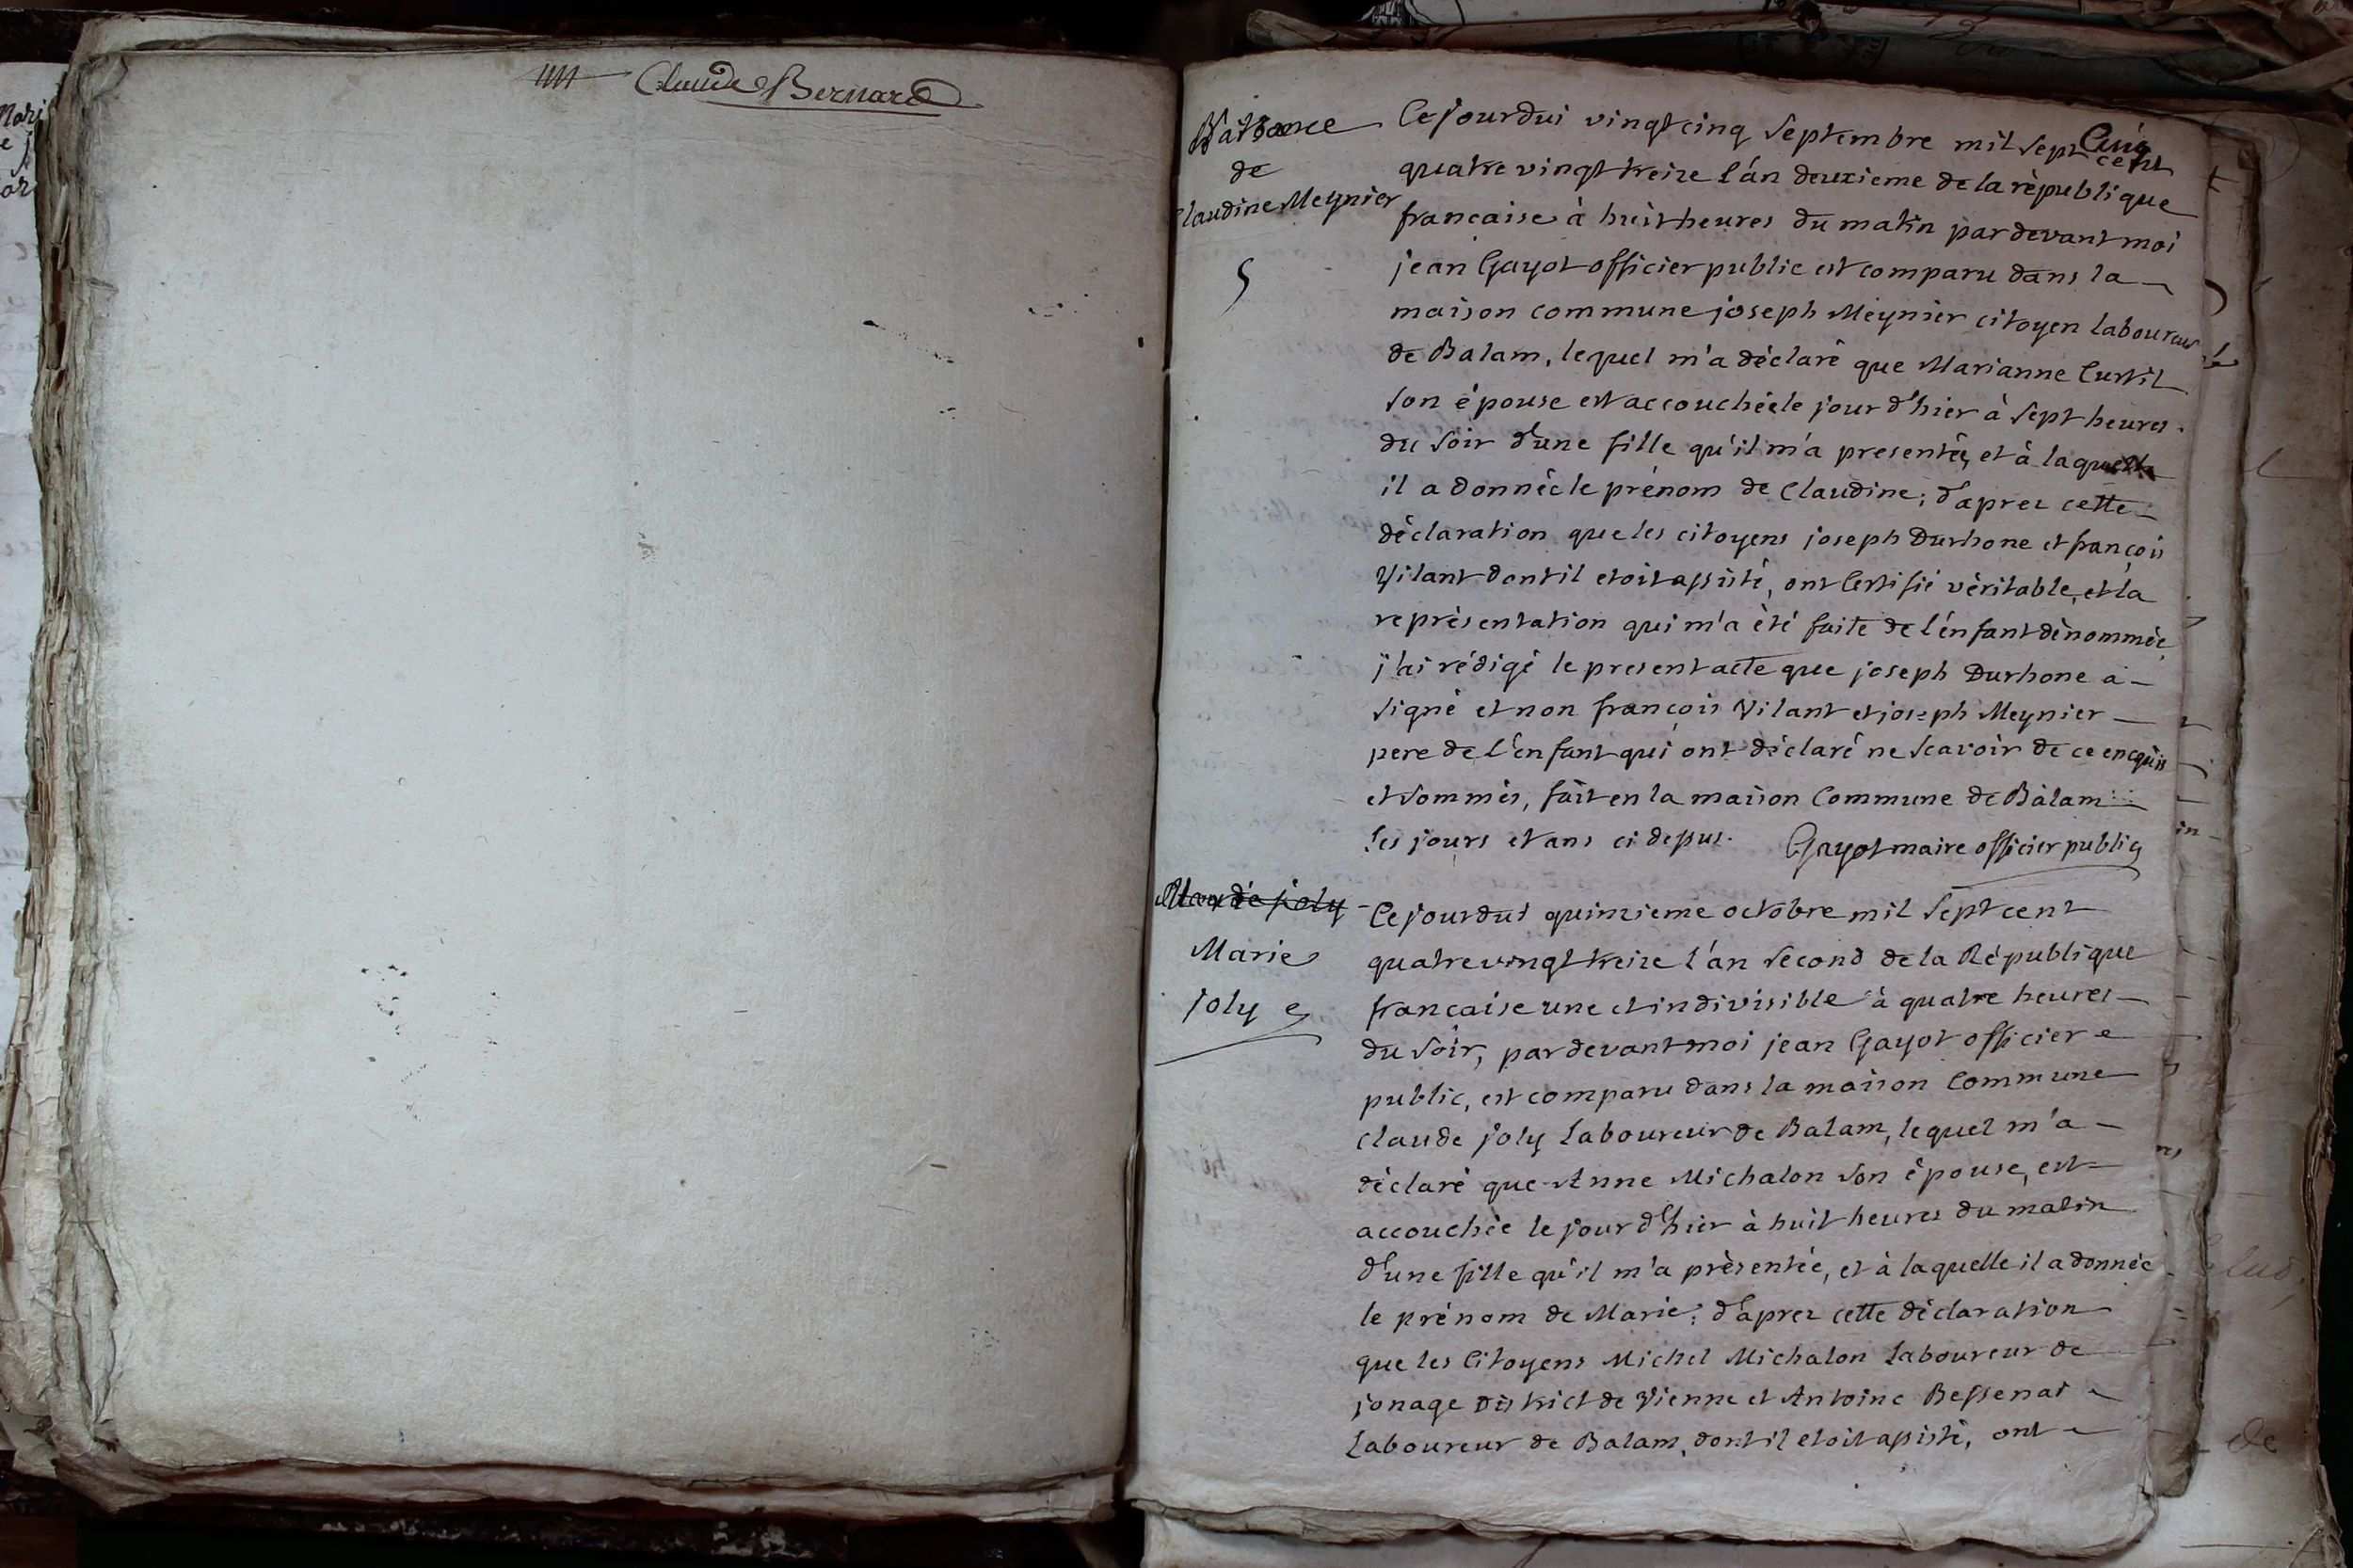 Claude Bernard
Naissance
de
Claudine Meynier
5
Cinq
Cejourdui vingtcinq Septembre mil Sept cent
quatre vingt treize l'án deuxieme de la rèpublique
francaise à huit heures du matin par devant moi
jean Gayot officier public est comparu dans la
maison commune joseph Meynier citoyen laboureur
de Balam, lequel m'a déclaré que Marianne Curtil
Son épouse est accouchéele jour d'hier à Sept heures
du Soir d'une fille qu'il m'a presentée, et à laquelle
il a donnée le prénom de Claudine; d'aprez cette
déclaration que les citoyens joseph Durhone et françois
Vilant dont il etoit assisté, ont Certifié véritable, et la
représentation qui m'a èté faite de l'énfant dénommée,
j'ai rédigé le present acte que joseph Durhone a
Signé et non françois Vilant et joseph Meynier
pere de l'énfant qui ont déclaré ne Scavoir de ce enquis
et Sommés, fait en la maison Commune de Balam
les jours et ans ci dessus. Gayot maire officier public
joly
Marie
joly
Cejourdui quinzieme octobre mil Sept cent
quatrevingt treize l'án Second de la République
francaise une et indivisible à quatre heures
du Soir, pardevant moi jean Gayot officier
public, est comparu dans la maison Commune
claude joly Laboureur de Balam, lequel m'a
déclaré que Anne Michalon Son épouse, est
accouchée le jour d'hier à huit heures du matin
d'une fille qu'il m'a présentée, et à laquelle il a donnée
le prénom de Marie; d'aprez cette déclaration
que les Citoyens Michel Michalon Laboureur de
jonage district de Vienne et Antoine Bessenai
Laboureur de Balam, dont il etoit assisté, ont